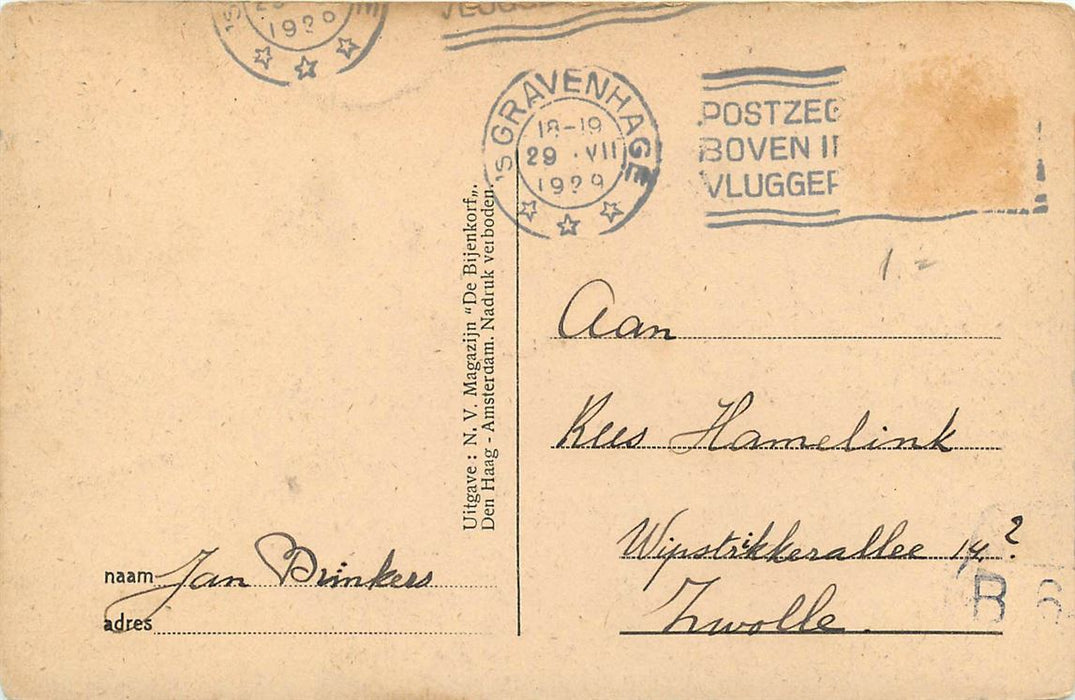 1929
VLUGGE
'S GRAVENHAGE
18-19
29 . VII
1929
POSTZEG
BOVEN I
VLUGGER
1.=
Uitgave : N. V. Magazijn "De Bijenkorf„.
Den Haag - Amsterdam. Nadruk verboden.
Aan
Kees Hamelink
Wipstrikkerallee 14?
Zwolle.
naam Jan Brinkers
adres
B